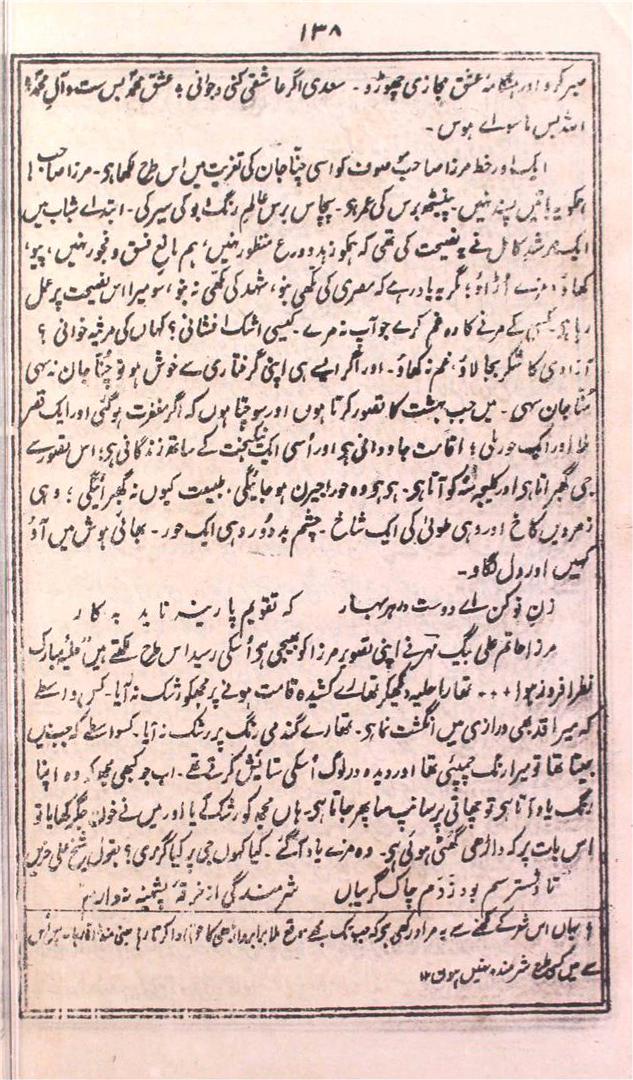 ۱۳۸
صبر کرو اور ہنگامۂ عشق مجازی چھوڑو ۔ سعدی اگر عاشقی کنی و جوانی ؛ عشق محمدؐ بس ست و آلِ محمدؐ ؛
اللہ بس ماسواے ہوس ۔
ایک اور خط مرزا صاحب موصوف کو اسی چنّا جان کی تعزیت میں اس طرح لکھا ہی ۔ مرزا صاحب !
ہمکو یہ باتیں پسند نہیں ۔ پینسٹھ برس کی عمر ہی ۔ پچاس برس عالمِ رنگ و بو کی سیر کی ۔ ابتداے شباب میں
ایک مرشدِ کامل نے یہ نصیحت کی تھی کہ ہمکو زہد و ورع منظور نہیں ، ہم مانعِ فسق و فجور نہیں ، پیو ،
کھاؤ ، مزے اُڑاؤ ؛ مگر یہ یاد رہے کہ مصری کی مکھی بنو ، شہد کی مکھی نہ بنو ، سو میرا اس نصیحت پر عمل
رہا ہی ۔ کسی کے مرنے کا وہ غم کرے جو آپ نہ مرے ۔ کیسی اشک افشانی ؟ کہاں کی مرثیہ خوانی ؟
آزادی کا شکر بجا لاؤ ، غم نہ کھاؤ ۔ اور اگر ایسے ہی اپنی گرفتاری سے خوش ہو تو چُنّا جان نہ سہی
مُنّا جان سہی ۔ میں جب بہشت کا تصور کرتا ہوں اور سوچتا ہوں کہ اگر مغفرت ہو گئی اور ایک قصر
ملا اور ایک حور ملی ؛ اقامت جاودانی ہی اور اُسی ایک نیکبخت کے ساتھ زندگانی ہی ؛ اس تصور سے
جی گھبراتا ہی اور کلیجہ مُنہ کو آتا ہی ۔ ہی ہی وہ حور اجیرن ہو جائیگی ، طبیعت کیوں نہ گھبرائیگی ؛ وہی
زمردیں کاخ اور وہی طوبیٰ کی ایک شاخ ۔ چشم بد دُور وہی ایک حور ۔ بھائی ہوش میں آؤ
کہیں اور دل لگاو ۔
زنِ نو کن اے دوست در ہر بہار کہ تقویم پارینہ ناید بہ کار
مرزا حاتم علی بیگ مہر نے اپنی تصویر مرزا کو بھیجی ہی اُسکی رسید اس طرح لکھتے ہیں " حلیۂ مبارک
نظر افروز ہوا + + + تمھارا حلیہ دیکھکر تمھارے کشیدہ قامت ہونے پر مجھکو رشک نہ آیا ۔ کس واسطے
کہ میرا قد بھی درازی میں انگشت نما ہی ۔ تمھارے گندمی رنگ پر رشک نہ آیا ۔ کسواسطے کہ جب میں
جیتا تھا تو میرا رنگ چمپئی تھا اور دیدہ ور لوگ اُسکی ستایش کرتے تھے ۔ اب جو کبھی مجھکو وہ اپنا
رنگ یاد آتا ہی تو چھاتی پر سانپ سا پھر جاتا ہی ۔ ہاں مجھ کو رشک آیا اور میں نے خونِ جگر کھایا تو
اس بات پر کہ داڑھی گھٹی ہوئی ہی ۔ وہ مزے یاد آ گئے ۔ کیا کہوں جی پر کیا گزری ؟ بقول شیخ علی حزیں
تا دسترسم بود زَدَم چاک گریباں شرمندگی از خرقۂ پشمینہ ندارم
؛ یہاں اس شعر کے لکھنے سے یہ مراد رکھی ہی کہ جب تک مجھے
سے میں کسی طرح شرمندہ نہیں ہوں ۱۲